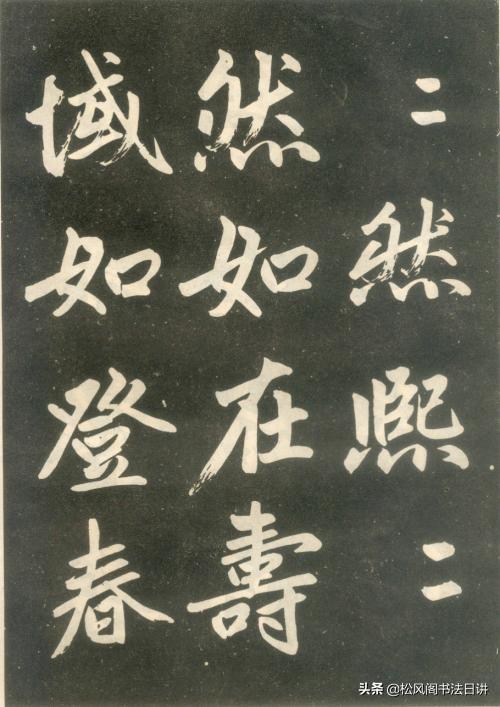 〻然熙〻
然如在壽
域如登春
头条 @松风阁书法日讲